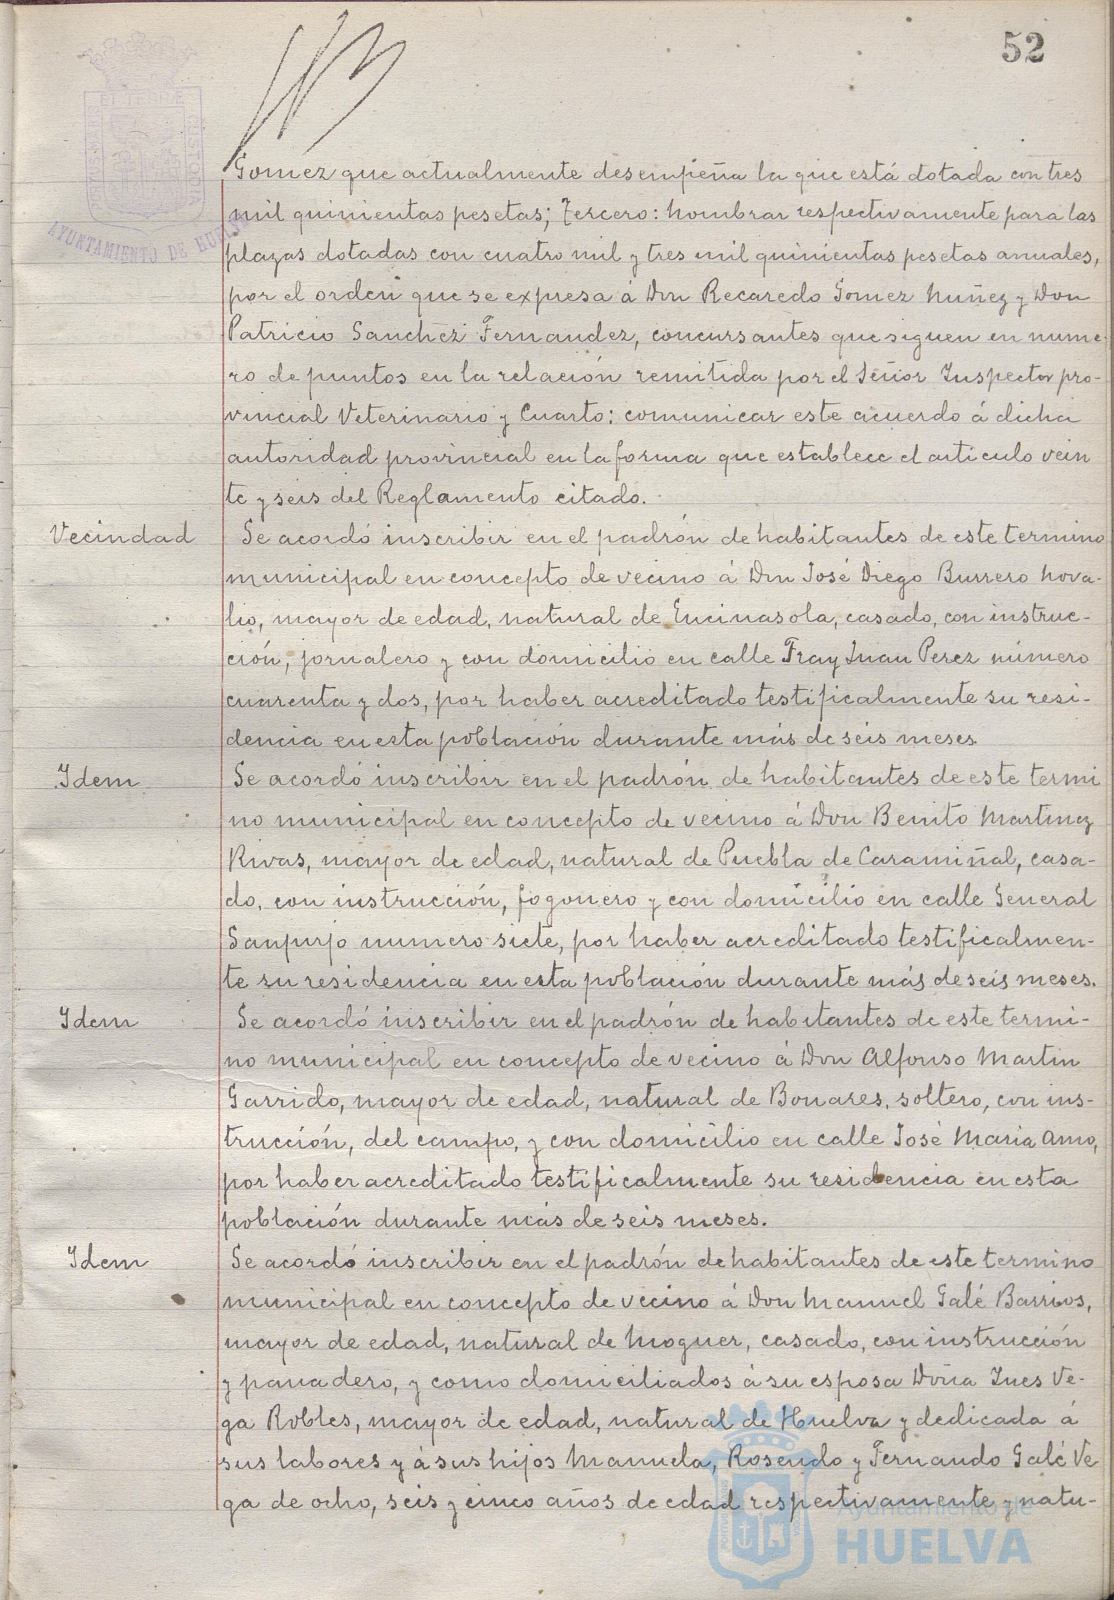 52
AYUNTAMIENTO DE HUELVA
Gomez que actualmente desempeña la que está dotada con tres
mil quinientas pesetas; Tercero: Nombrar respectivamente para las
plazas dotadas con cuatro mil y tres mil quinientas pesetas anuales,
por el orden que se expresa á Don Recaredo Gomez Nuñez y Don
Patricio Sanchez Fernandez, concursantes que siguen en nume-
ro de puntos en la relación remitida por el Señor Inspector pro-
vincial Veterinario y Cuarto: comunicar este acuerdo á dicha
autoridad provincial en la forma que establece el articulo vein
te y seis del Reglamento citado.
Vecindad Se acordó inscribir en el padrón de habitantes de este termino
municipal en concepto de vecino á Don José Diego Burrero Nova-
lio, mayor de edad, natural de Encinasola, casado, con instruc-
ción, jornalero y con domicilio en calle Fray Juan Perez número
cuarenta y dos, por haber acreditado testificalmente su resi-
dencia en esta población durante más de seis meses.
Idem Se acordó inscribir en el padrón de habitantes de este termi
no municipal en concepto de vecino á Don Benito Martinez
Rivas, mayor de edad, natural de Puebla de Caramiñal, casa-
do, con instrucción, fogonero y con domicilio en calle General
Sanjurjo numero siete, por haber acreditado testificalmen-
te su residencia en esta población durante más de seis meses.
Idem Se acordó inscribir en el padrón de habitantes de este termi-
no municipal en concepto de vecino á Don Alfonso Martin
Garrido, mayor de edad, natural de Bonares, soltero, con ins-
trucción, del campo, y con domicilio en calle José Maria Amo,
por haber acreditado testificalmente su residencia en esta
población durante más de seis meses.
Idem Se acordó inscribir en el padrón de habitantes de este termino
municipal en concepto de vecino á Don Manuel Galé Barrios,
mayor de edad, natural de Moguer, casado, con instrucción
y panadero, y como domiciliados á su esposa Doña Ines Ve-
ga Robles, mayor de edad, natural de Huelva y dedicada á
sus labores y á sus hijos Manuela, Rosendo y Fernando Galé Ve
ga de ocho, seis y cinco años de edad respectivamente y natu-
Ayuntamiento de
HUELVA